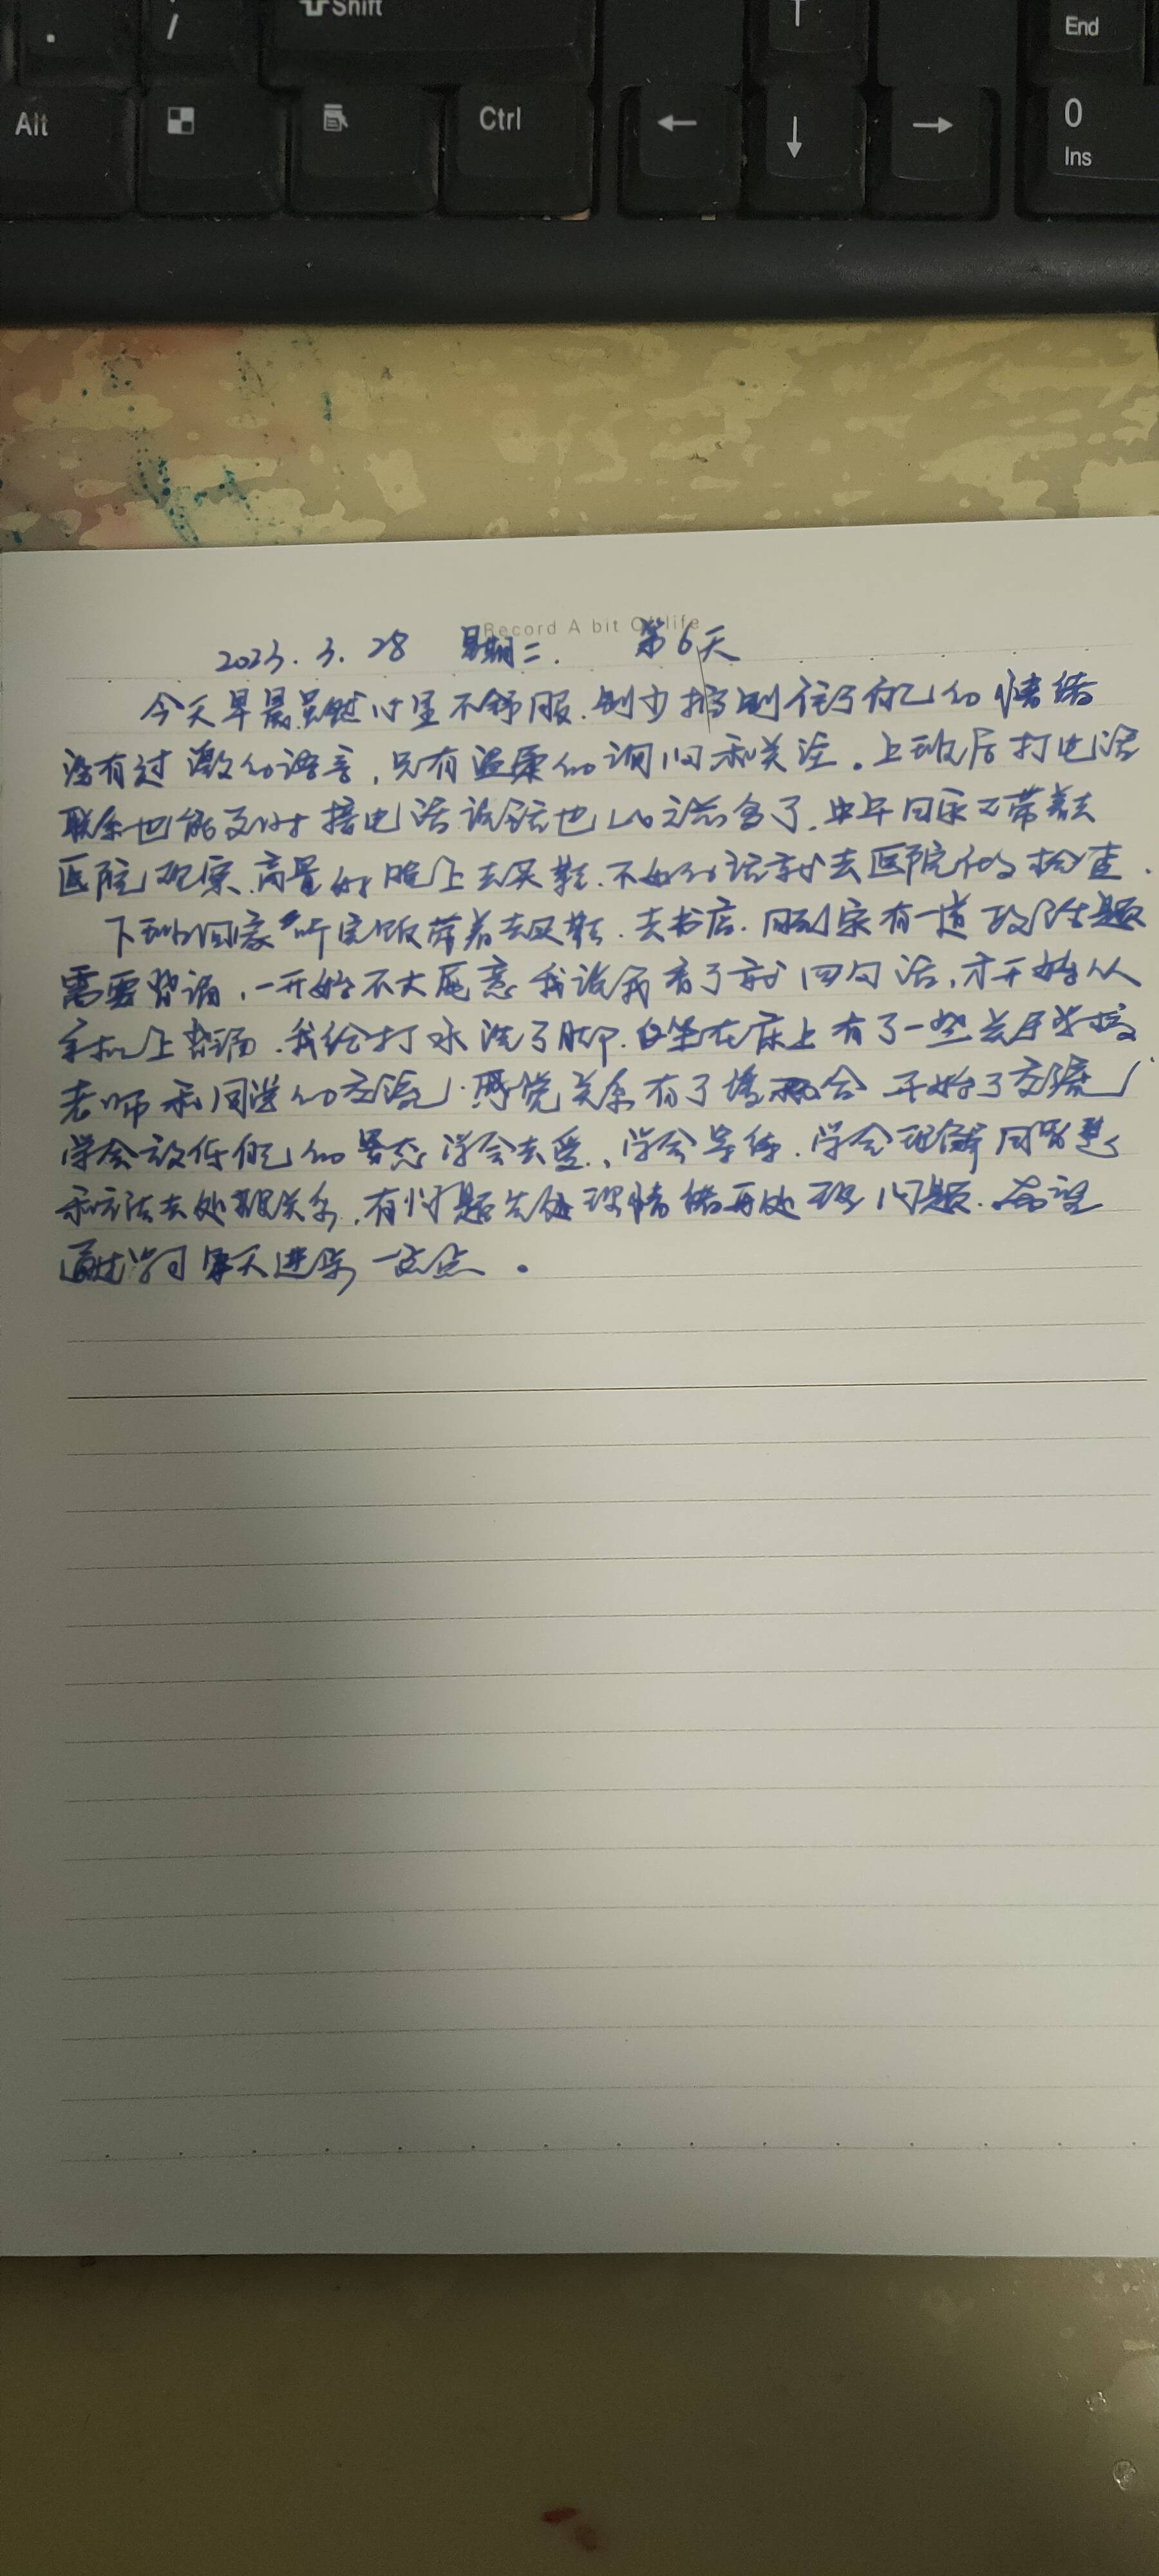 Shift
/
.
↑
End
Alt
Ctrl
←
↓
→
0
Ins
Record A bit Of life
2023.3.28 星期二. 第6天
今天早晨虽然心里不舒服.制住了自己的情绪
没有过激的语言,只有温柔的询问和关注。上班后打电话
联系也能及时接电话说话也多了.中午回家又带着去
医院观察.商量好晚上去买鞋.不好的话就去医院检查.
下班回家吃完饭带着去买鞋.去书店.回到家有一道政治题
需要背诵,一开始不大愿意我说我看了就四句话,才开始从
手机上背诵.我给打水洗了脚.坐在床上有了一些关于学校
老师和同学的交流.感觉关系有了缓和 开始了交流
学会放低自己的姿态学会去爱、学会等待.学会理解用智慧
和方法去处理关系,有问题先处理情绪再处理问题.希望
通过学习每天进步一点点。